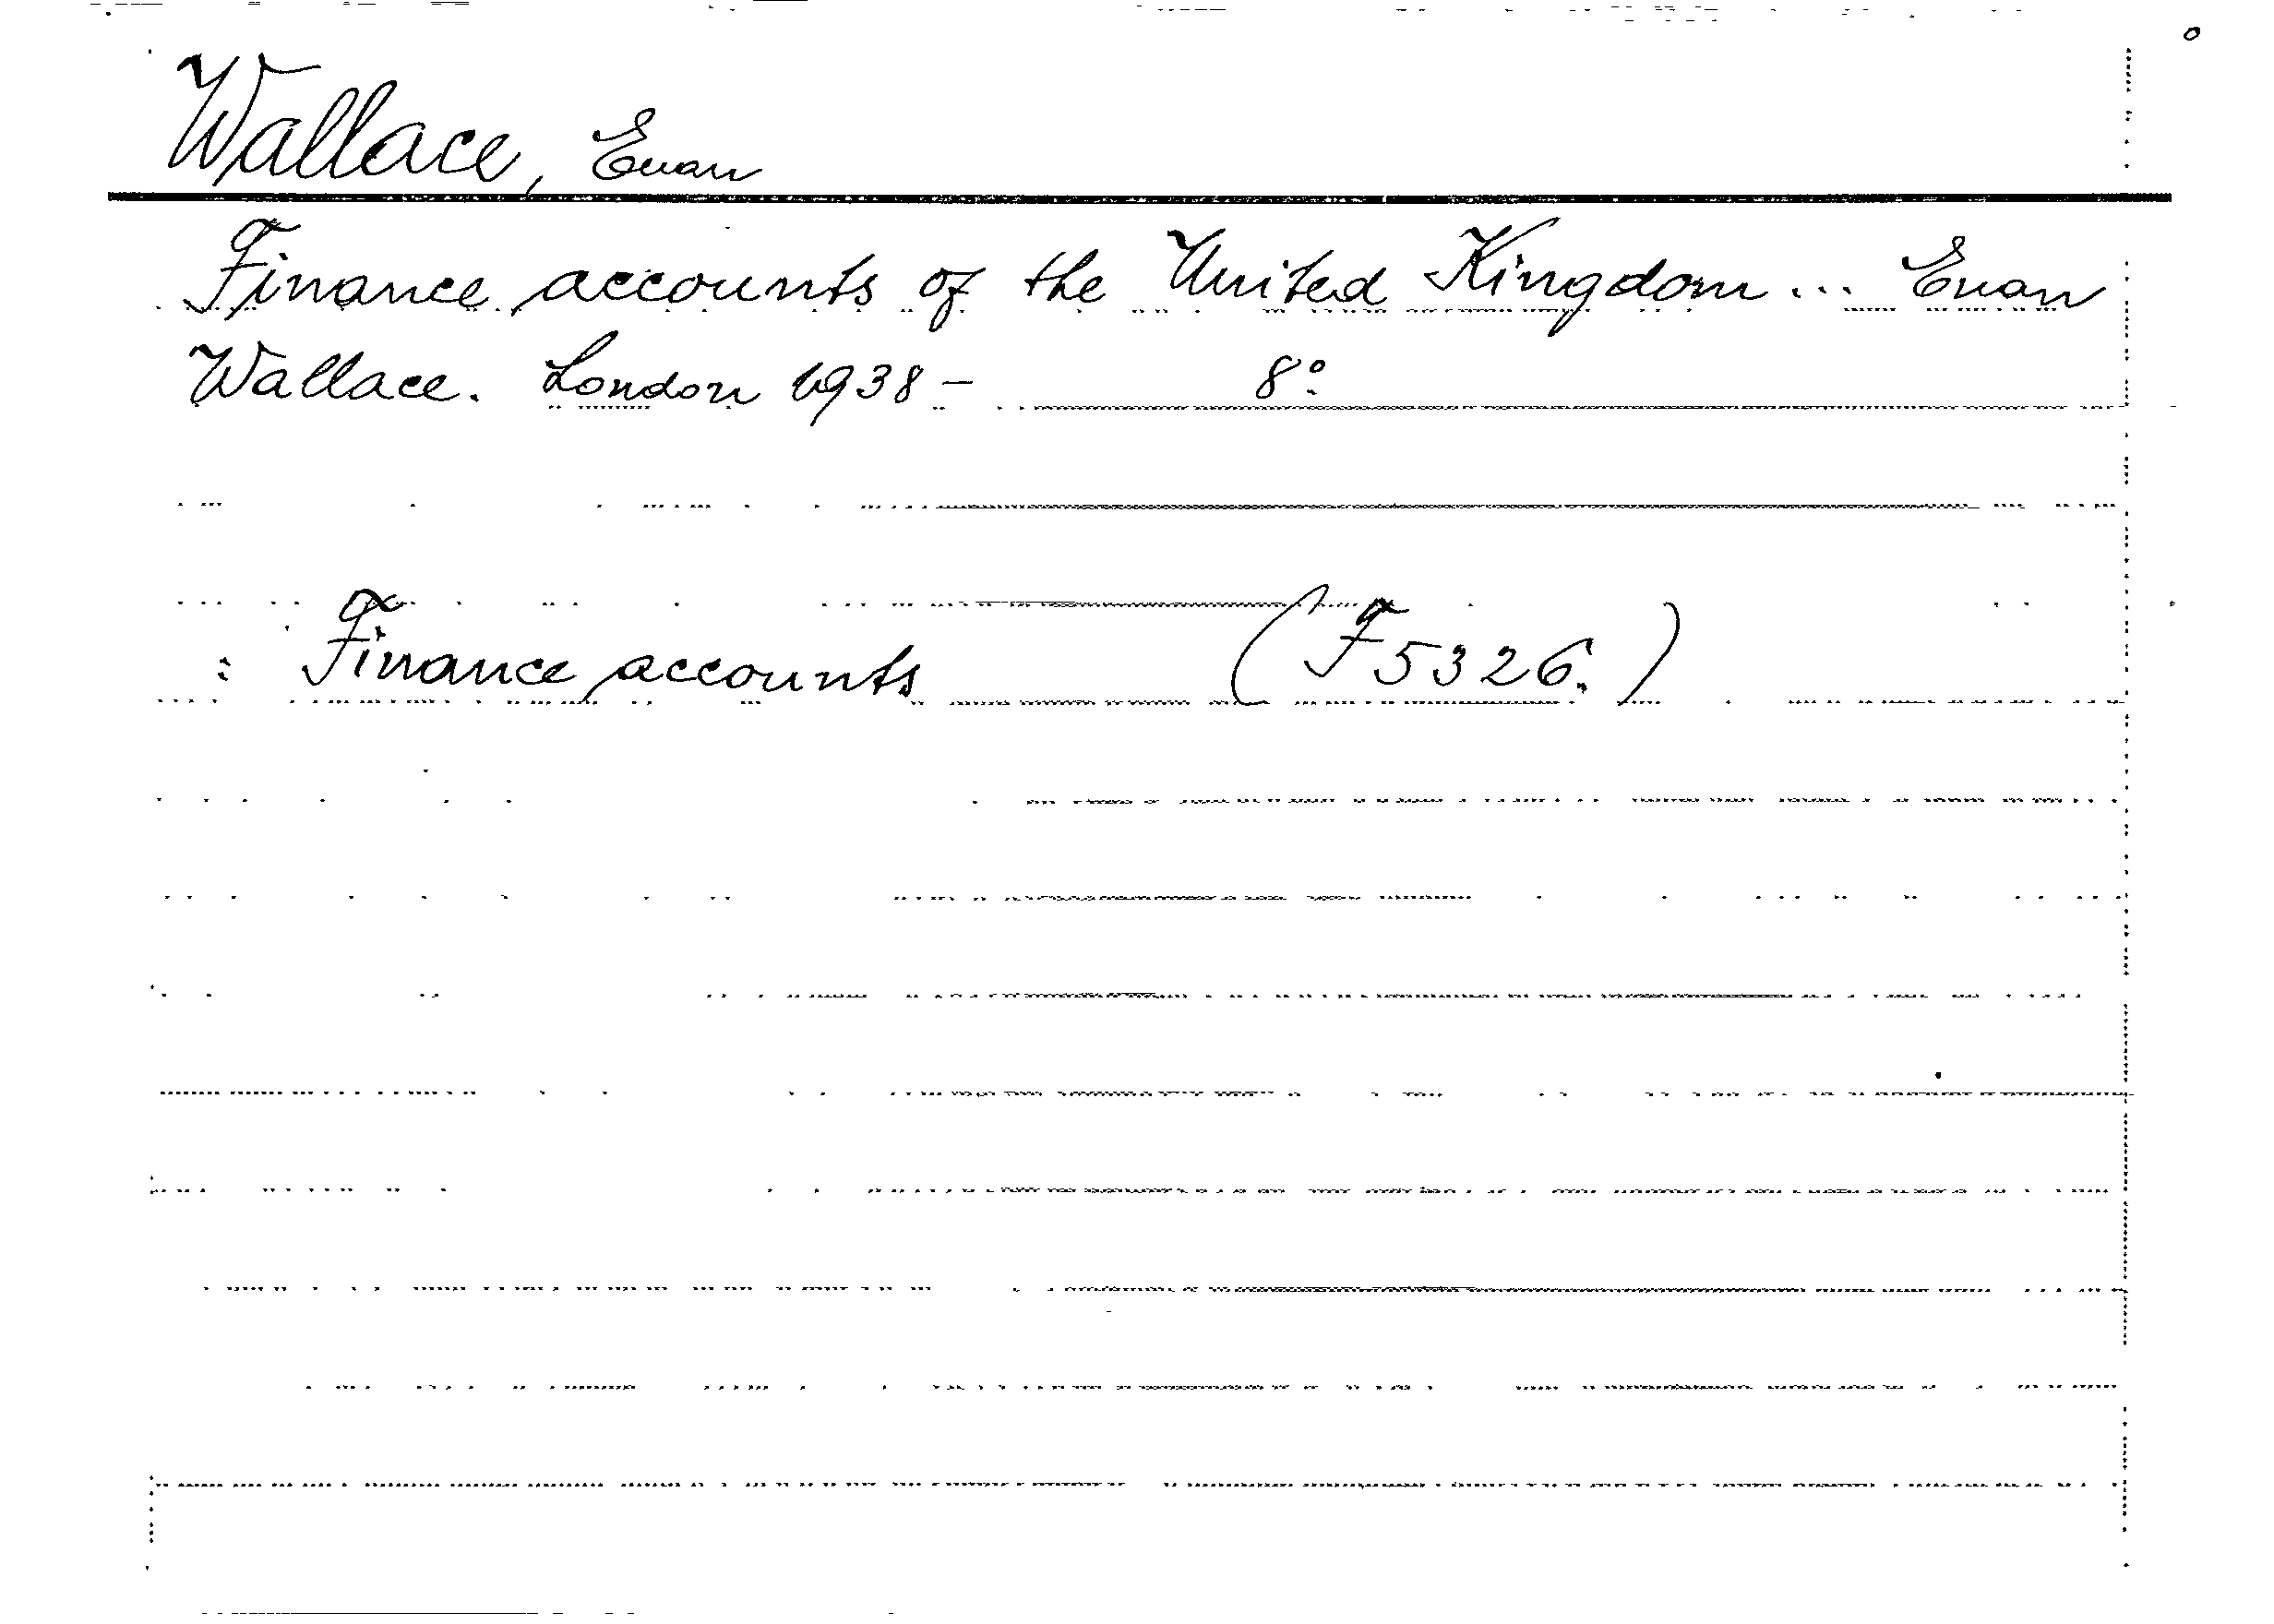 Wallace, Euan
Finance accounts of the United Kingdom ... Euan
Wallace. London 1938 - 8°
: Finance accounts (F 5326.)